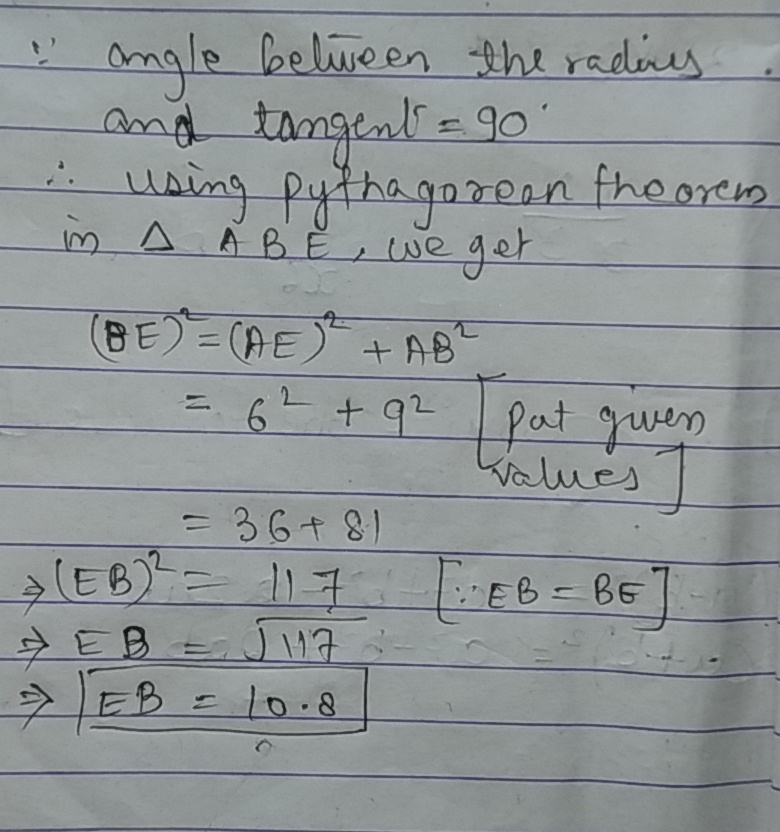 ∵ angle between the radius
and tangent = 90°
∴ using pythagorean theorem
in △ ABE, we get
(BE)² = (AE)² + AB²
= 6² + 9² [put given
values]
= 36 + 81
⇒ (EB)² = 117 [∵ EB = BE]
⇒ EB = √117
⇒ EB = 10.8